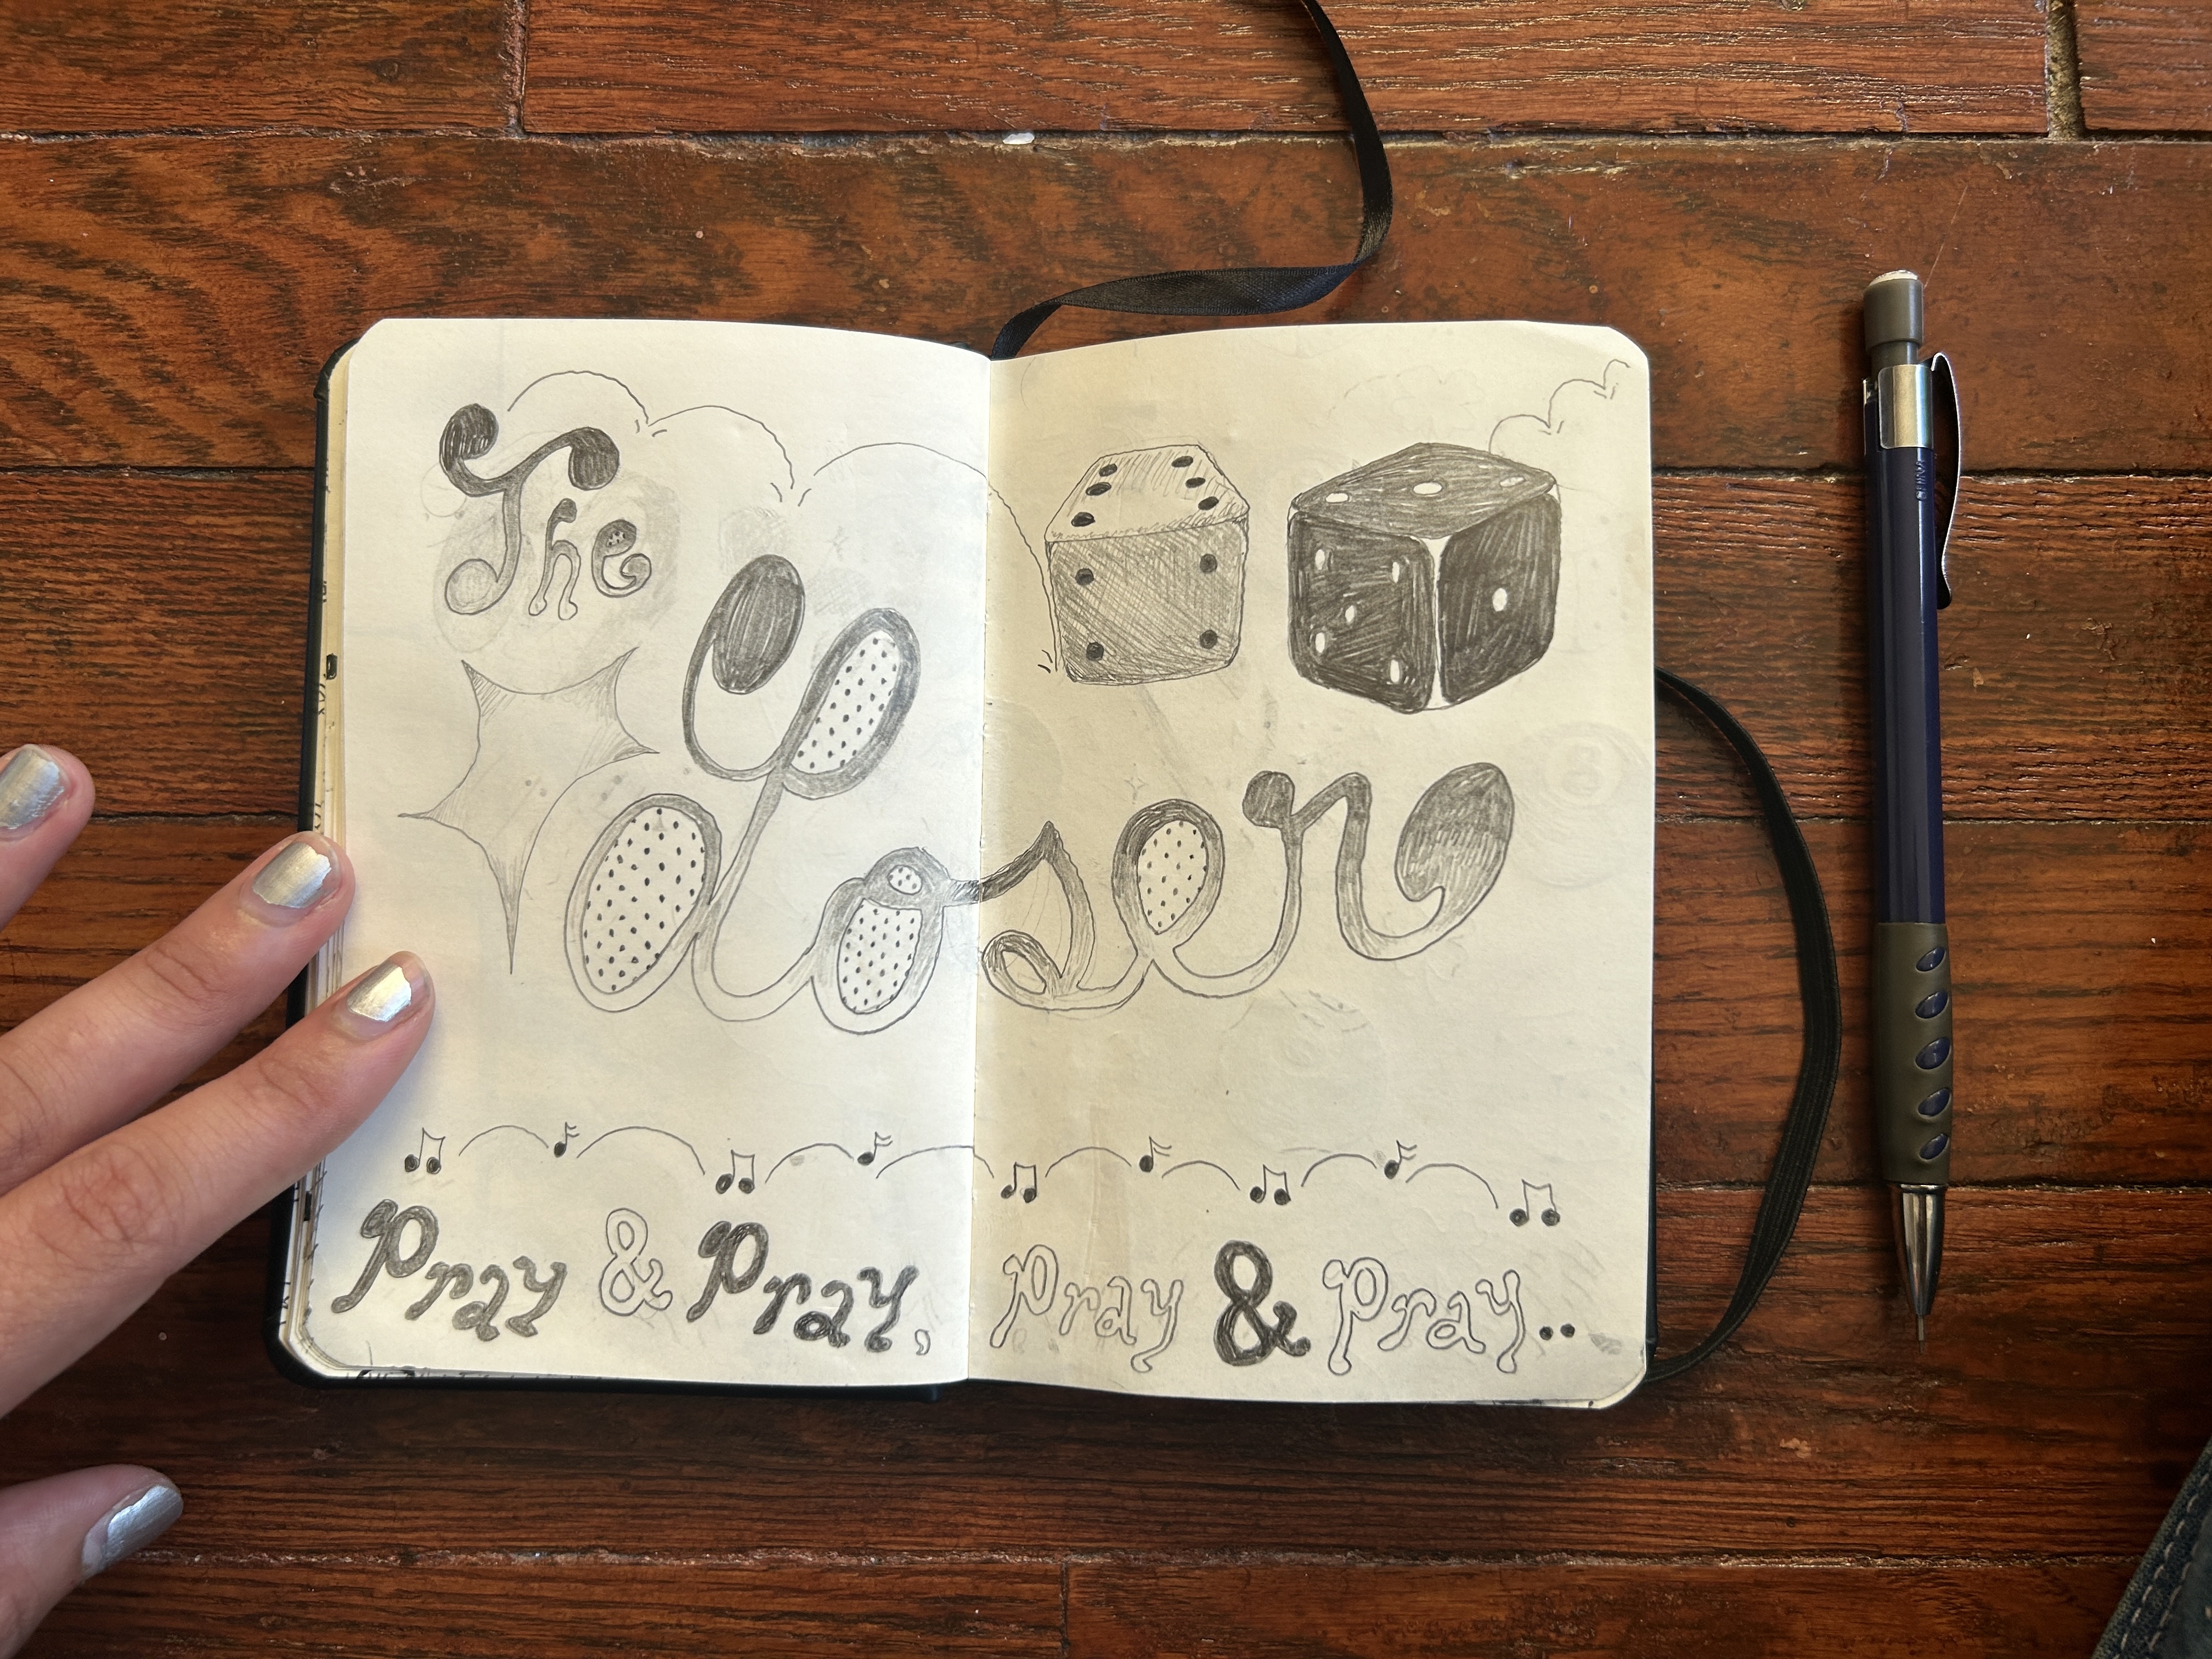 The
Loser
Pray & Pray, Pray & Pray..